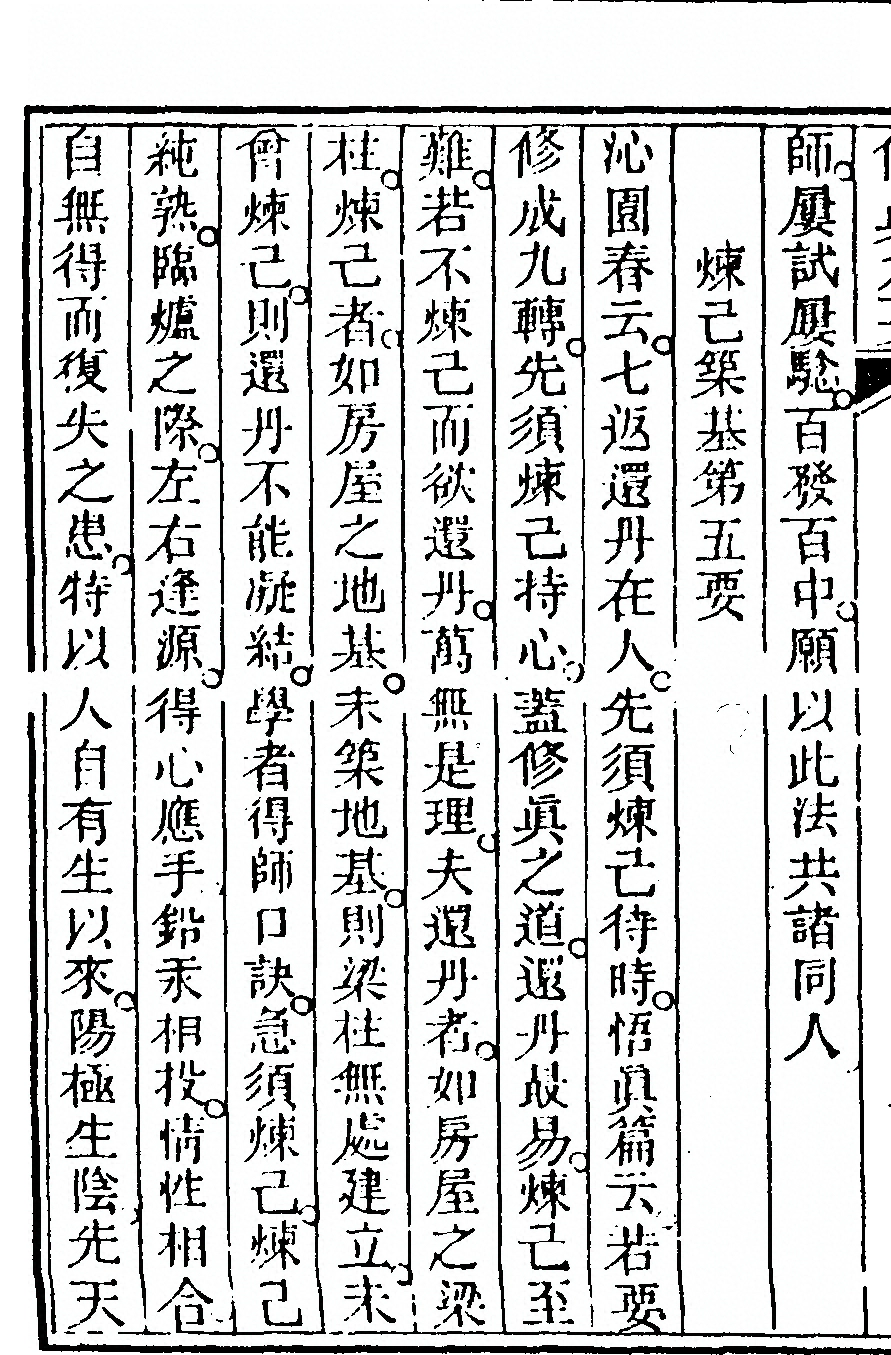 師屢試屢騐百發百中願以此法共諸同人
煉己築基第五要
沁園春云七返還丹在人先須煉己待時悟眞篇云若要
修成九轉先須煉己持心蓋修眞之道還丹最易煉己至
難若不煉己而欲還丹萬無是理夫還丹者如房屋之梁
柱煉己者如房屋之地基未築地基則梁柱無處建立未
曾煉己則還丹不能凝結學者得師口訣急須煉己煉己
純熟臨爐之際左右逢源得心應手鉛汞相投情性相合
自無得而復失之患特以人自有生以來陽極生陰先天